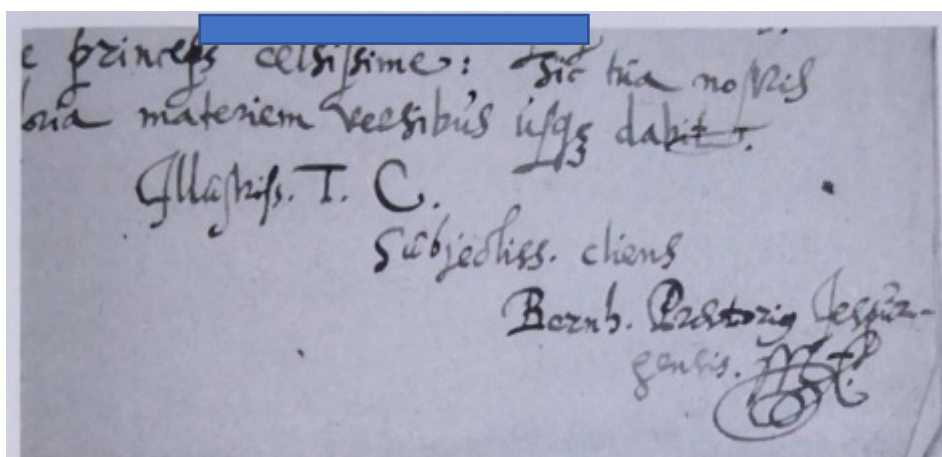 e princeps celsissime: Sic tua nostris
oria materiem versibus usq₃ dabit.
Illustriss. T. C.
Subjectiss. cliens
Bernh. Prætoriꝰ
gensis.